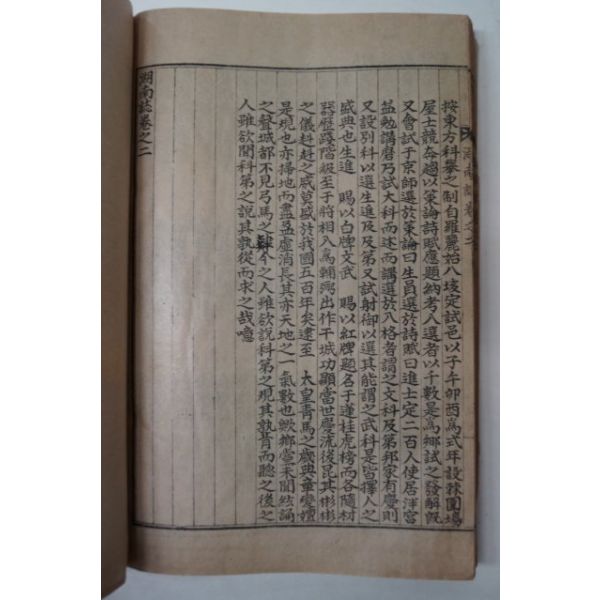 按東方科擧之制自羅麗始八垓定試邑以子午卯酉爲式年設棘圍場
屋士競奔趨以策論詩賦應題納考入選者以千數是爲鄕試之發解旣
又會試于京師選於策論曰生員選於詩賦曰進士定二百人使居泮宮
益勉講磨乃試大科而述而講選於八格者謂之文科及第邦家有慶則
又設別科以選生進及及第又試射御以選其能謂之武科是皆擇人之
盛典也生進 賜以白牌文武 賜以紅牌題名于蓮桂虎榜而各隨材
器歷踐階級至于將相入爲輔弼出作干城功顯當世慶流後昆其彬彬
之儀赳赳之威莫盛於我國五百年矣逮至 太皇靑馬之歲典章變嬗
是規也亦掃地而盡盈虛消長其亦天地之一氣數也歟鄕黨未聞絃誦
之聲城都不見弓馬之肆今之人雖欲說科第之規其孰肯而聽之後之
人雖欲聞科第之說其孰從而求之哉噫
湖南誌卷之二